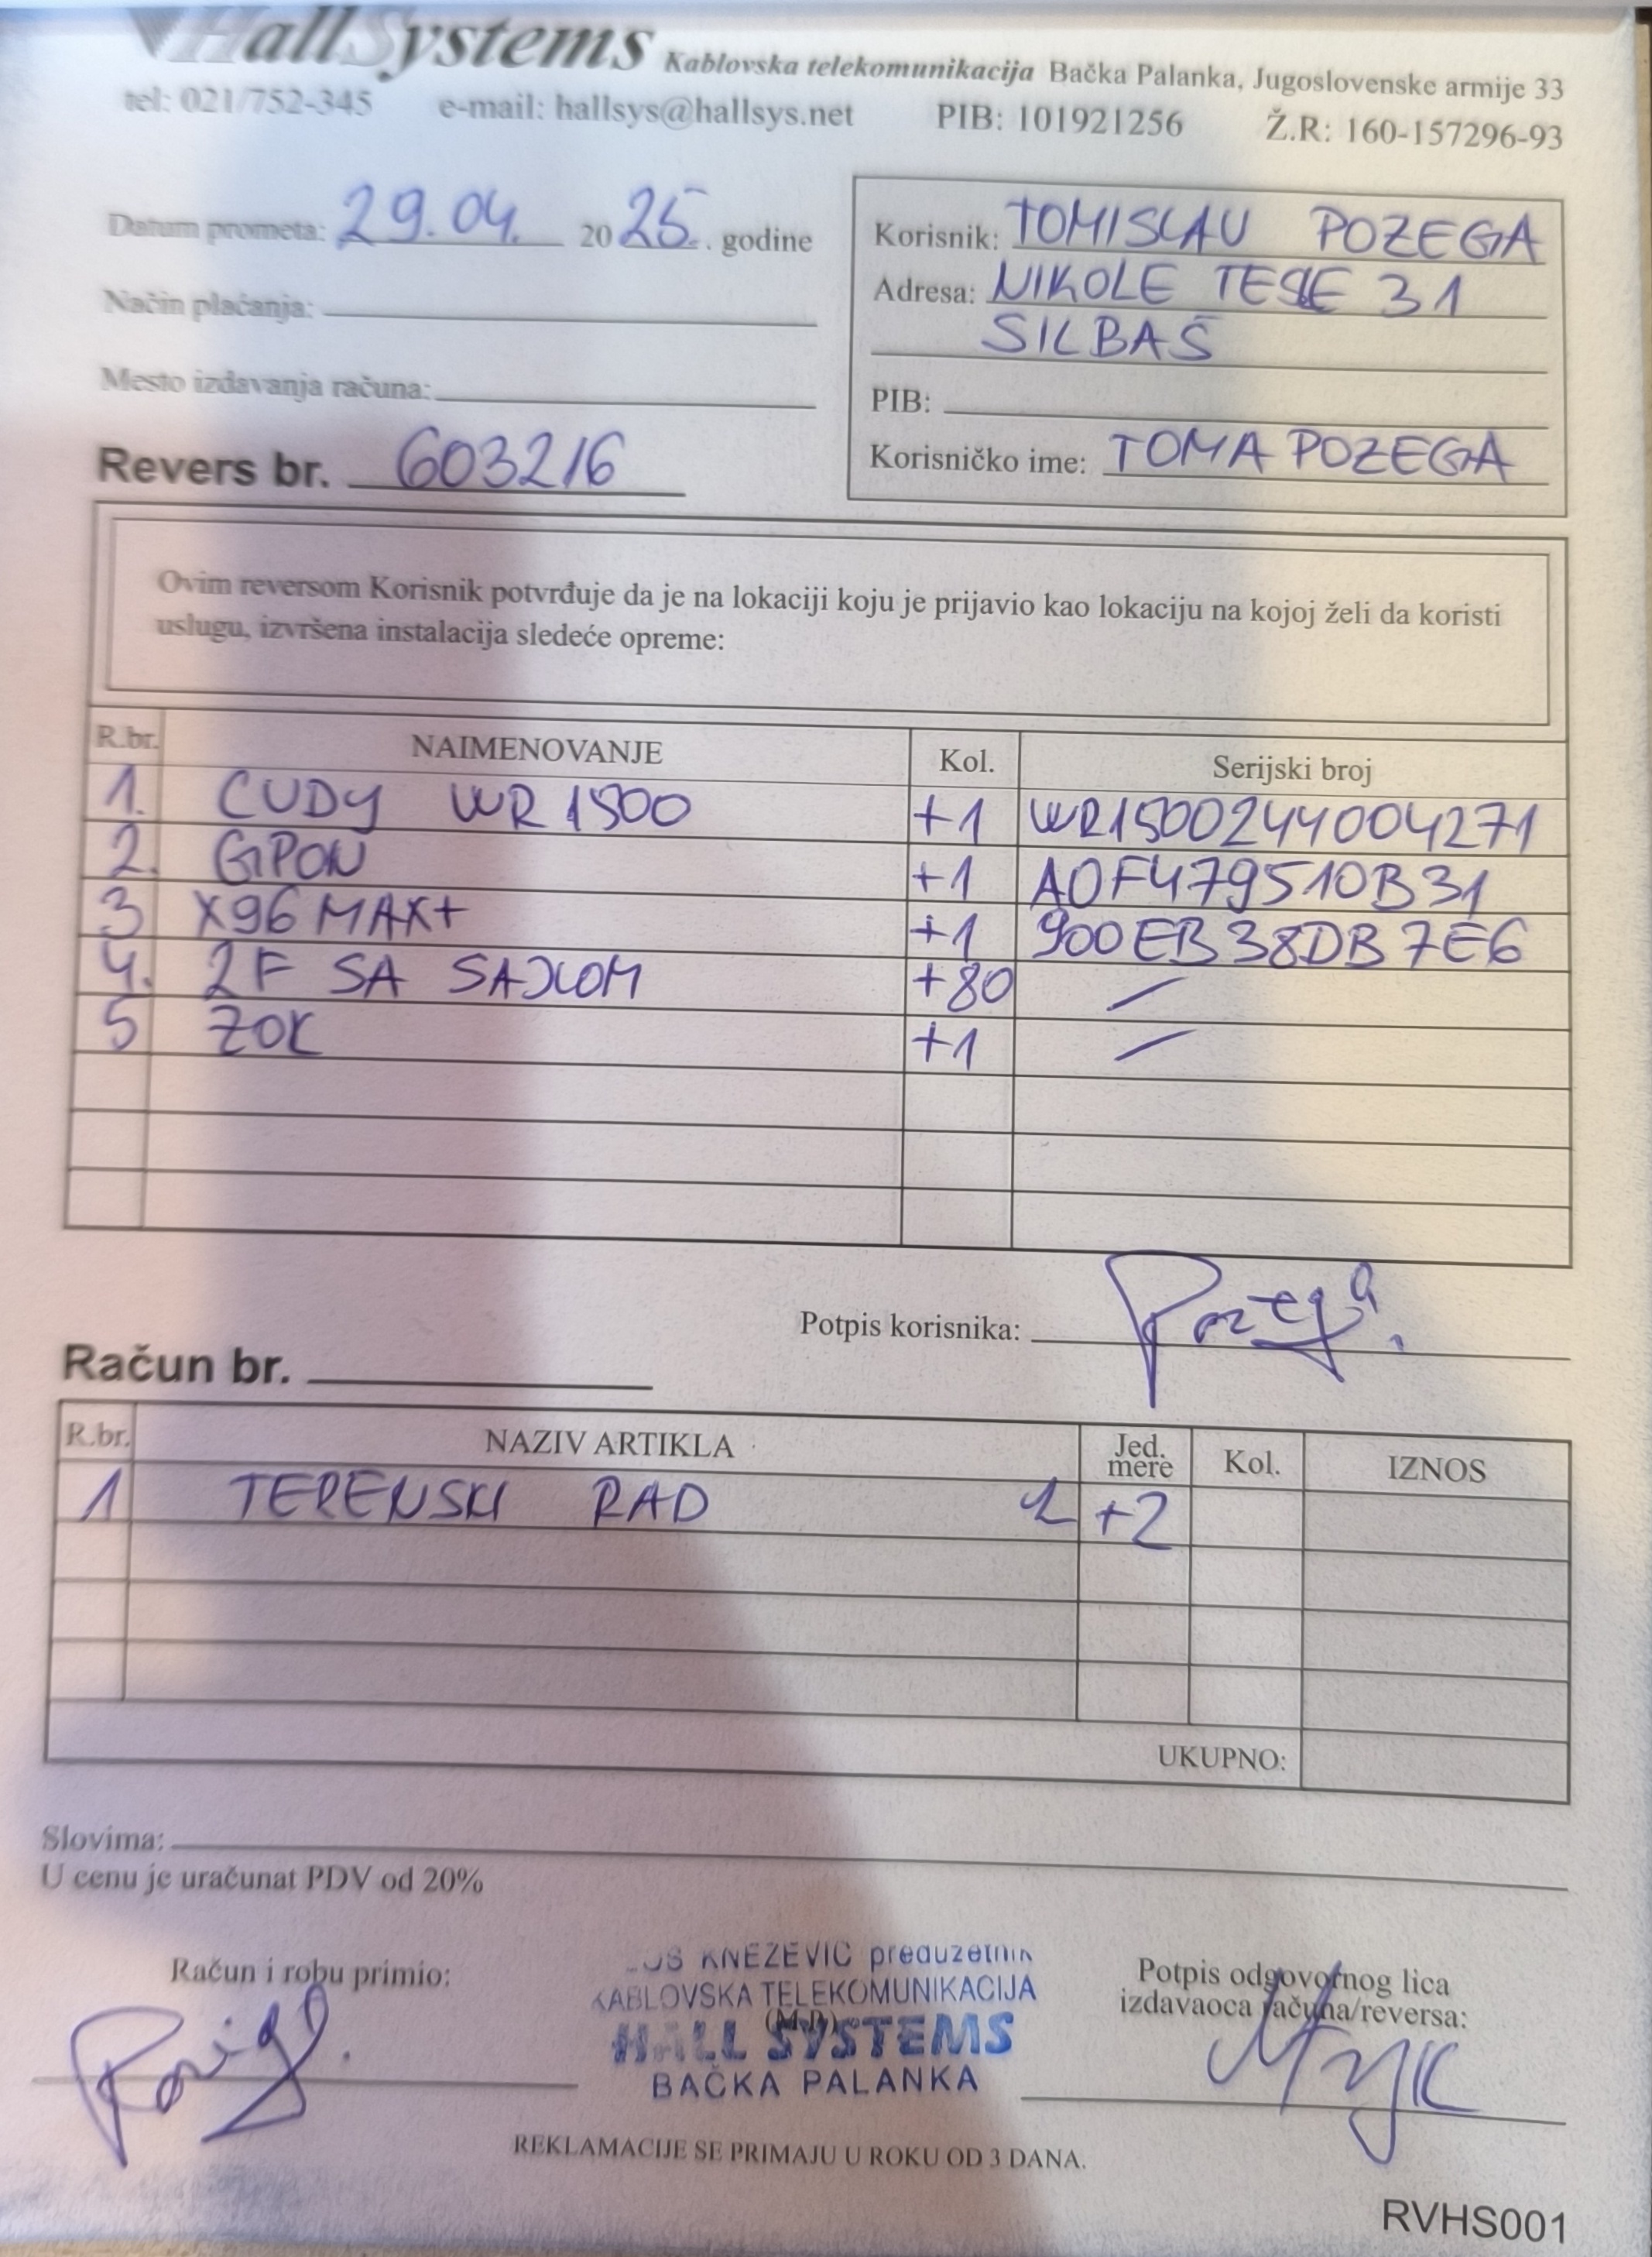 HallSystems Kablovska telekomunikacija Bačka Palanka, Jugoslovenske armije 33
tel: 021/752-345 e-mail: hallsys@hallsys.net PIB: 101921256 Ž.R: 160-157296-93
Datum prometa: 29.04. 2025. godine
Način plaćanja:
Mesto izdavanja računa:
Revers br. 603216
Korisnik: TOMISLAV POZEGA
Adresa: NIKOLE TESLE 31
SILBAŠ
PIB:
Korisničko ime: TOMA POZEGA
Ovim reversom Korisnik potvrđuje da je na lokaciji koju je prijavio kao lokaciju na kojoj želi da koristi
uslugu, izvršena instalacija sledeće opreme:
R.br. NAIMENOVANJE Kol. Serijski broj
1. CUDY WR 1500 +1 WR1500244004271
2. GPON +1 A0F479510B31
3 X96 MAX+ +1 900EB38DB7E6
4. 2F SA SAJLOM +80 /
5 ZOK +1 /
Potpis korisnika: Pozega
Račun br.
R.br. NAZIV ARTIKLA Jed. mere Kol. IZNOS
1 TERENSKI RAD 1 +2
UKUPNO:
Slovima:
U cenu je uračunat PDV od 20%
Račun i robu primio:
KNEZEVIC preduzetnik
KABLOVSKA TELEKOMUNIKACIJA
(M.P.)
HALL SYSTEMS
BAČKA PALANKA
Potpis odgovornog lica
izdavaoca računa/reversa:
REKLAMACIJE SE PRIMAJU U ROKU OD 3 DANA.
RVHS001